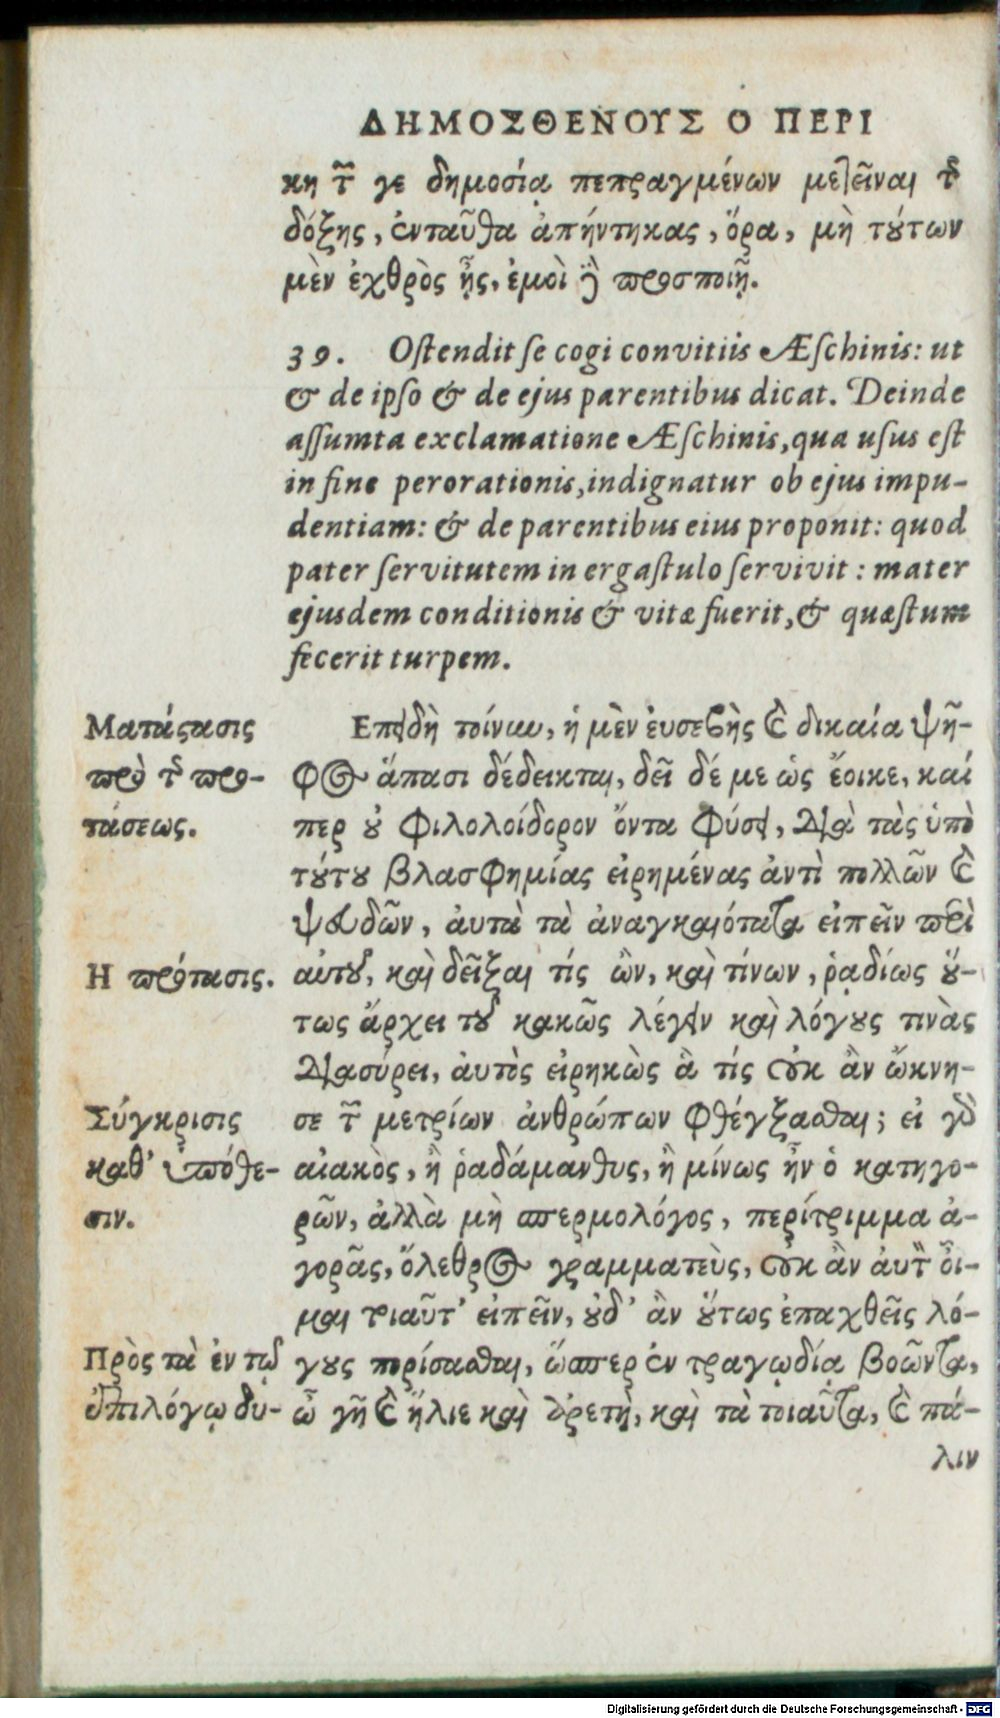 ΔΗΜΟΣΘΕΝΟΥΣ Ο ΠΕΡΙ
κη τῶν γε δημοσίᾳ πεπραγμένων μετεῖναι τῆς
δόξης, ἐνταῦθα ἀπήντηκας, ὅρα, μὴ τούτων
μὲν ἐχθρὸς ᾖς, ἐμοὶ δὲ προσποιῇ.
39. Ostendit se cogi convitiis Æschinis: ut
& de ipso & de ejus parentibus dicat. Deinde
assumta exclamatione Æschinis, qua usus est
in fine perorationis, indignatur ob ejus impu-
dentiam: & de parentibus eius proponit: quod
pater servitutem in ergastulo servivit: mater
ejusdem conditionis & vitæ fuerit, & quæstum
fecerit turpem.
Ματάστασις
πρὸ τῆς προ-
τάσεως.
Η πρότασις.
Σύγκρισις
καθ’ ὑπόθε-
σιν.
Πρὸς τὰ ἐν τῷ
ἐπιλόγῳ δυ-
Επειδὴ τοίνυν, ἡ μὲν ἐυσεβὴς καὶ δικαία ψῆ-
φος ἅπασι δέδεικται, δεῖ δέ με ὡς ἔοικε, καί
περ οὐ φιλολοίδορον ὄντα φύσει, διὰ τὰς ὑπὸ
τούτου βλασφημίας εἰρημένας ἀντὶ πολλῶν καὶ
ψευδῶν, ἀυτὰ τὰ ἀναγκαιότατα εἰπεῖν περὶ
αὐτοῦ, καὶ δεῖξαι τίς ὢν, καὶ τίνων, ῥᾳδίως οὕ-
τως ἄρχει τοῦ κακῶς λέγειν καὶ λόγους τινὰς
διασύρει, ἀυτὸς εἰρηκὼς ἃ τίς οὐκ ἂν ὤκνη-
σε τῶν μετρίων ἀνθρώπων φθέγξασθαι; εἰ γὰρ
αἰακὸς, ἢ ῥαδάμανθυς, ἢ μίνως ἦν ὁ κατηγο-
ρῶν, ἀλλὰ μὴ σπερμολόγος, περίτριμμα ἀ-
γορᾶς, ὄλεθρος γραμματεὺς, οὐκ ἂν ἀυτὸν οἶ-
μαι τοιαῦτ’ εἰπεῖν, οὐδ’ ἂν οὕτως ἐπαχθεῖς λό-
γους πορίσασθαι, ὥσπερ ἐν τραγῳδίᾳ βοῶντα,
ὦ γῆ καὶ ἥλιε καὶ ἀρετὴ, καὶ τὰ τοιαῦτα, καὶ πά-
λιν
Digitalisierung gefördert durch die Deutsche Forschungsgemeinschaft - DFG